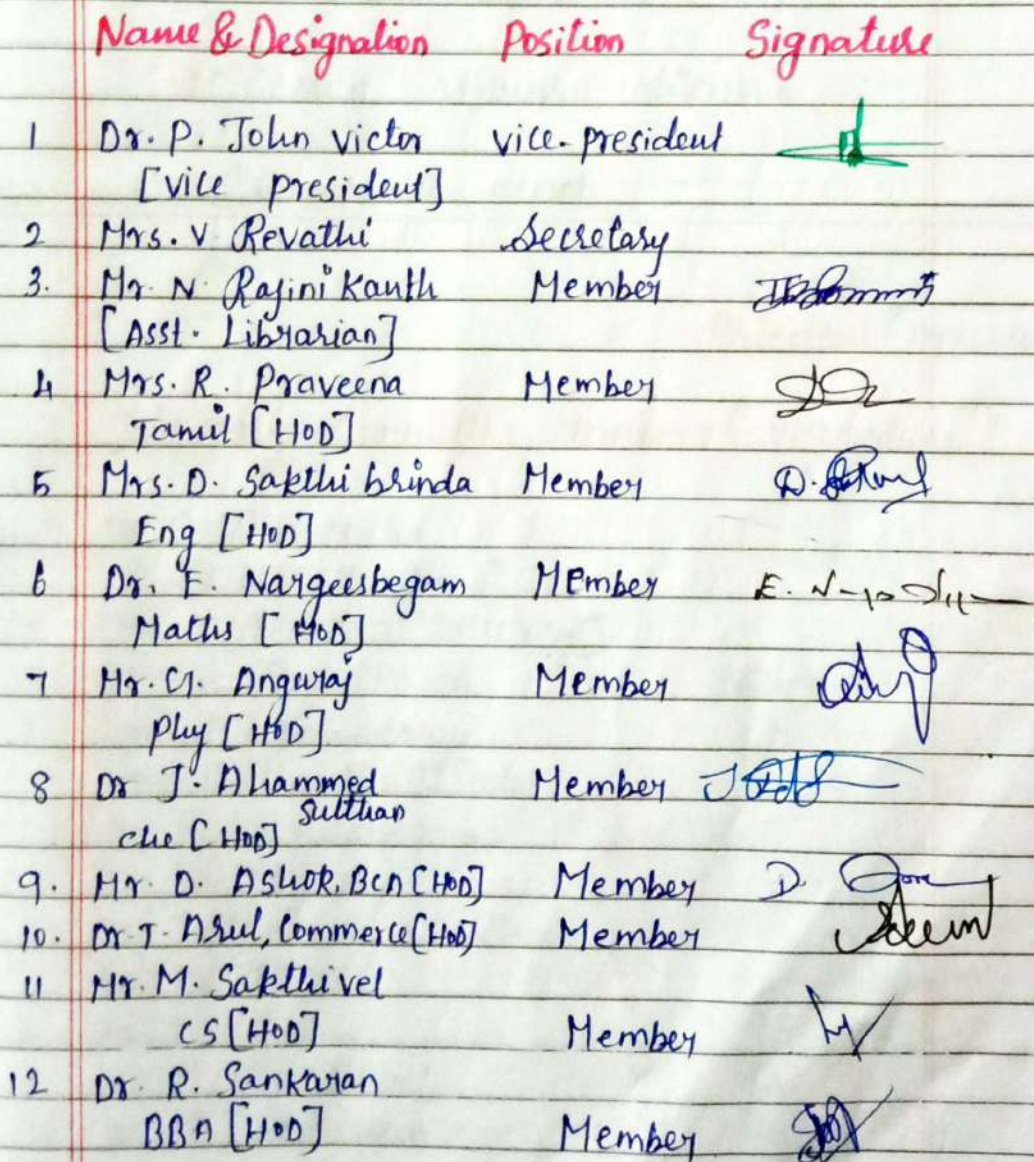 Name & Designation Position Signature
1 Dr. P. John victor vice-president
[vice president]
2 Mrs. V Revathi Secretary
3. Mr. N. Rajini Kanth Member
[Asst. Librarian]
4 Mrs. R. Praveena Member
Tamil [HOD]
5 Mrs. D. Sakthi brinda Member D.
Eng [HOD]
6 Dr. E. Nargeesbegam Member E.
Maths [HOD]
7 Mr. G. Anguraj Member
Phy [HOD]
8 Dr J. Ahammed Member J
Sulthan
che [HOD]
9. Mr. D. ASHOK, BCA [HOD] Member D.
10. Dr. T. Arul, Commerce [HOD] Member
11 Mr. M. Sakthivel
CS [HOD] Member
12 Dr. R. Sankaran
BBA [HOD] Member